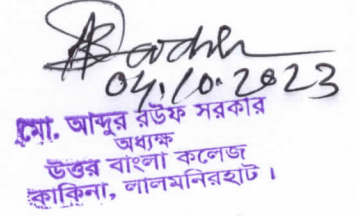 04.10.2023
মো. আব্দুর রউফ সরকার
অধ্যক্ষ
উত্তর বাংলা কলেজ
কাকিনা, লালমনিরহাট।